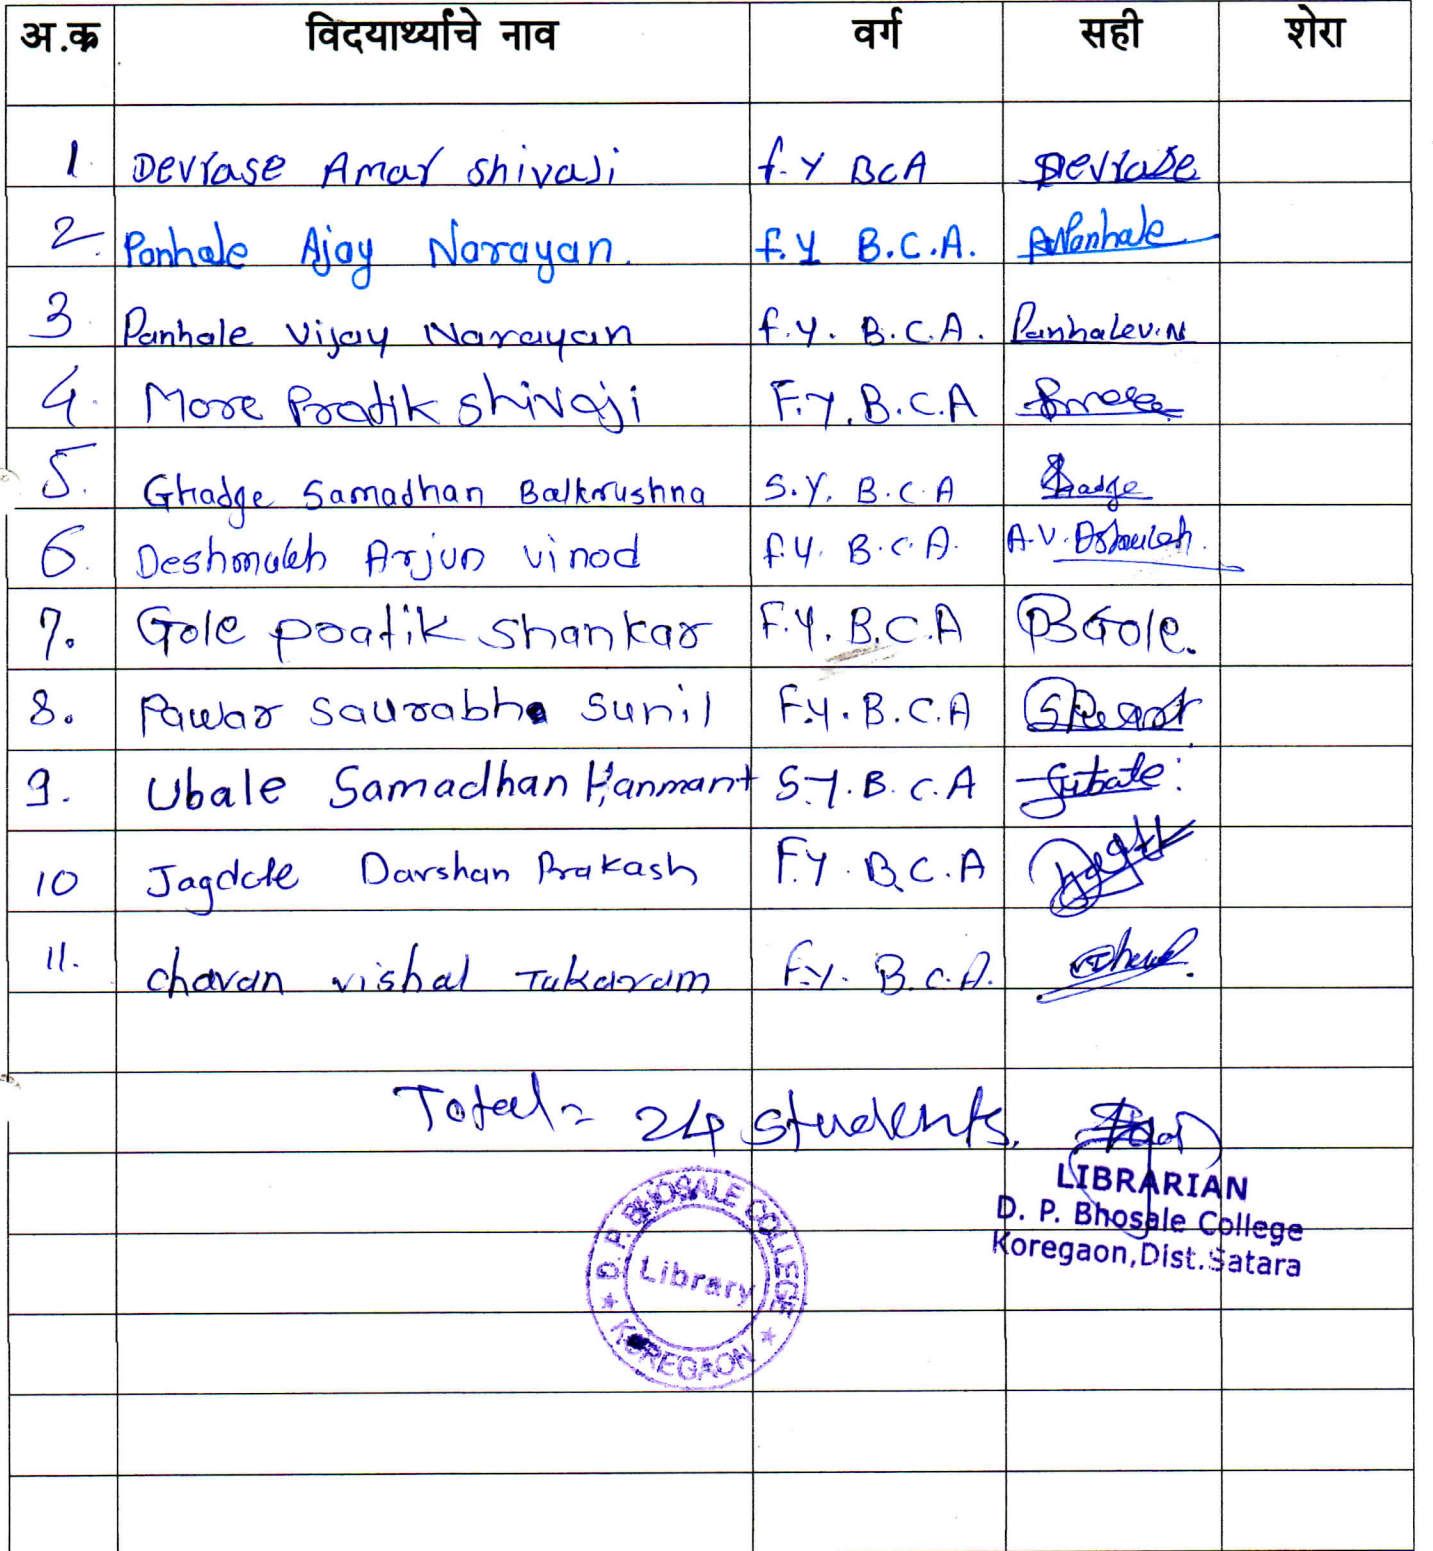 अ.क्र विदयार्थ्याचे नाव वर्ग सही शेरा
1. Devrase Amar Shivaji f.Y BCA Devrase
2. Panhale Ajay Narayan. f.Y B.C.A. Panhale
3. Panhale Vijay Narayan f.y. B.C.A. Panhalev.N
4. More Pratik Shivaji F.Y.B.C.A
5. Ghadge Samadhan Balkrushna S.Y. B.C.A Ghadge
6. Deshmukh Arjun Vinod f.y. B.C.A. A.V.
7. Gole pratik Shankar F.Y. B.C.A PSGole.
8. Pawar Saurabh Sunil F.Y.B.C.A
9. Ubale Samadhan Hanmant S.Y.B.C.A
10 Jagdale Darshan Prakash F.Y.B.C.A
11. chavan vishal Tukaram F.Y. B.C.A.
Total = 24 students.
LIBRARIAN
D. P. Bhosale College
Koregaon,Dist.Satara
D. P. BHOSALE COLLEGE
Library
★ KOREGAON ★